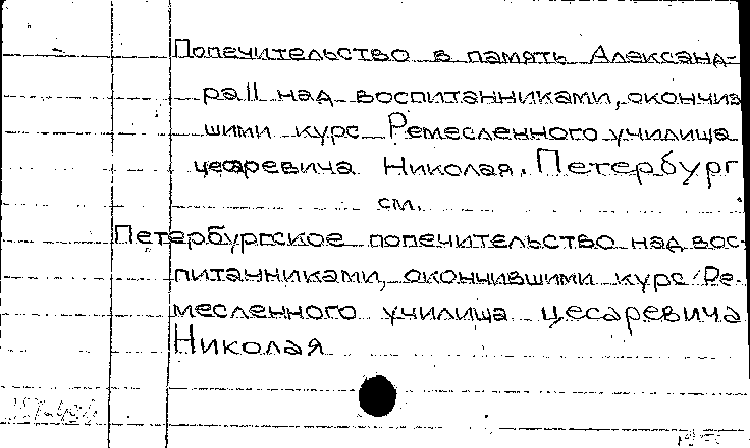 Попечительство в память Александ-
ра II над воспитанниками, окончив
шими курс Ремесленного училища
цесаревича Николая. Петербург
см.
Петербургское попечительство над вос-
питанниками, окончившими курс Ре-
месленного училища цесаревича
Николая